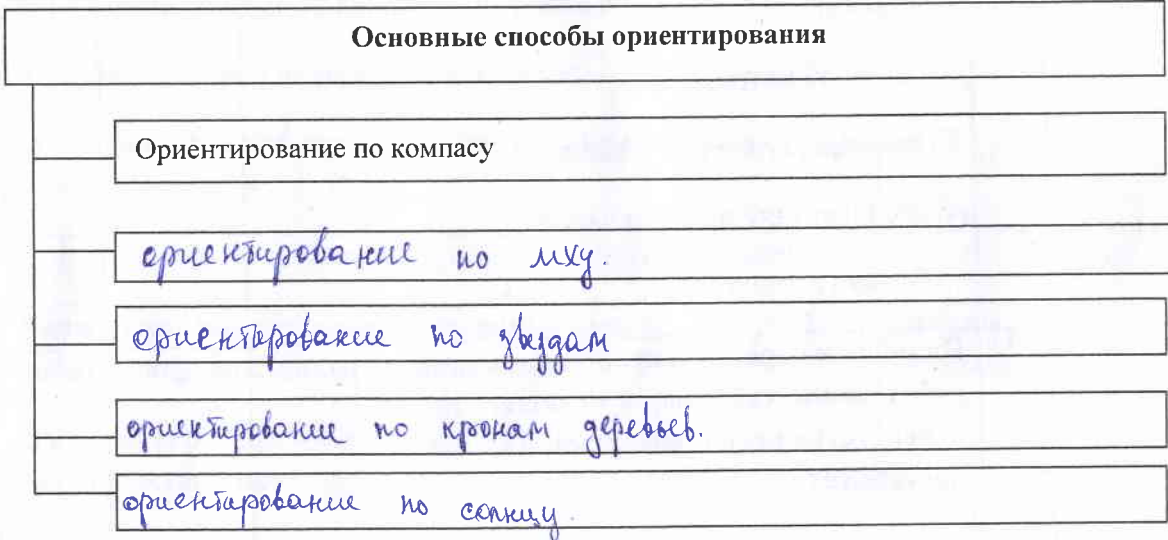 Основные способы ориентирования
Ориентирование по компасу
ориентирование по мху.
ориентирование по звёздам
ориентирование по кронам деревьев.
ориентирование по солнцу.